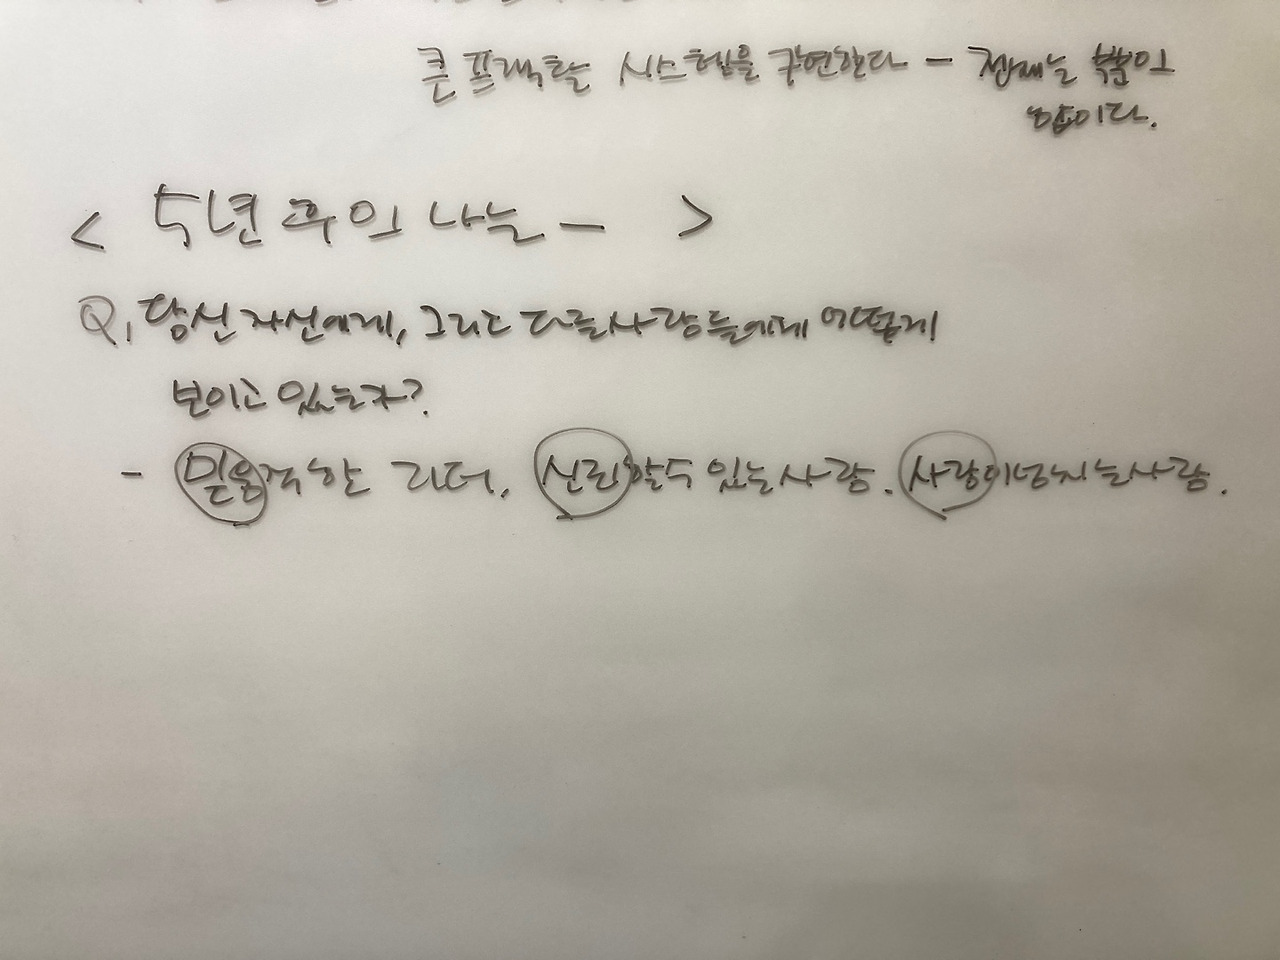 큰 프랙탈 시스템을 구현한다 - 전체는 부분의
합이다.
< 5년 후의 나는 - >
Q. 당신 자신에게, 그리고 다른사람들에게 어떻게
보이고 있는가?
- 믿음직한 리더. 신뢰할수 있는 사람. 사랑이 넘치는 사람.